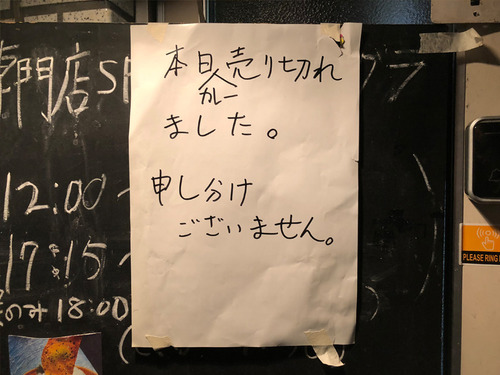 本日売り切れ
カレー
ました。
申し分け
ございません。
専門店SP
12:00〜
17:15〜
のみ18:00
PLEASE RING